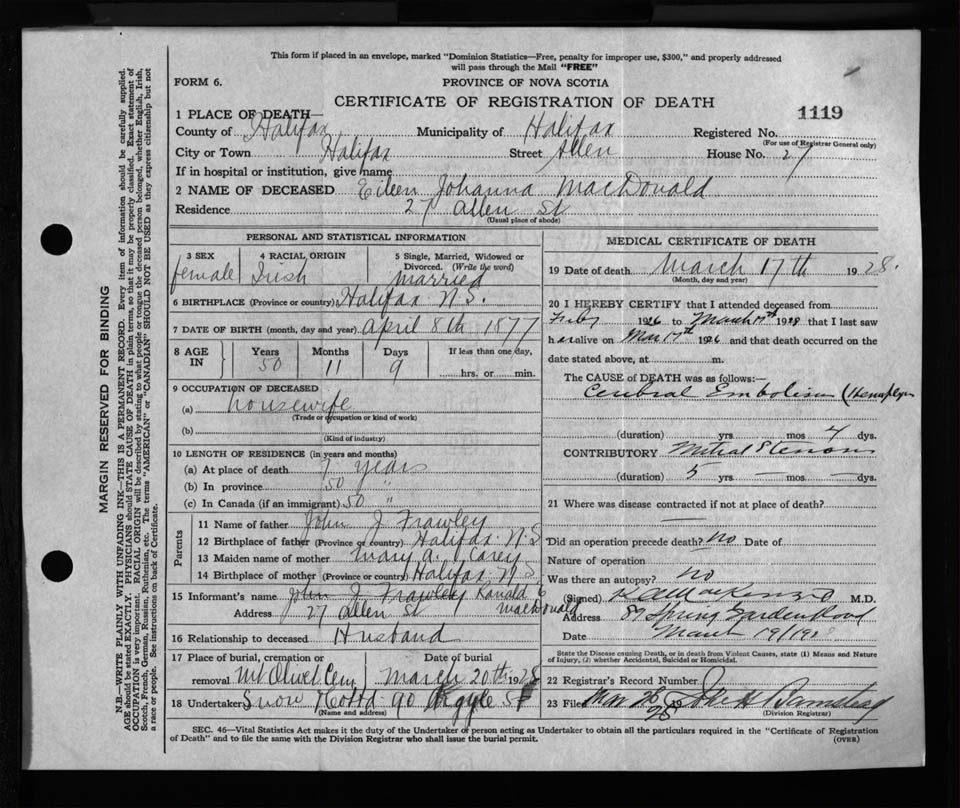 This form if placed in an envelope, marked "Dominion Statistics—Free, penalty for improper use, $300," and properly addressed
will pass through the Mail "FREE"
FORM 6.
PROVINCE OF NOVA SCOTIA
CERTIFICATE OF REGISTRATION OF DEATH
1119
1 PLACE OF DEATH—
County of Halifax Municipality of Halifax Registered No.
(For use of Registrar General only)
City or Town Halifax Street Allen House No. 27
If in hospital or institution, give name
2 NAME OF DECEASED Eileen Johanna MacDonald
Residence 27 Allen St
(Usual place of abode)
PERSONAL AND STATISTICAL INFORMATION
3 SEX 4 RACIAL ORIGIN 5 Single, Married, Widowed or Divorced. (Write the word)
female Irish married
6 BIRTHPLACE (Province or country) Halifax N.S.
7 DATE OF BIRTH (month, day and year) April 8th 1877
8 AGE IN Years Months Days If less than one day,
50 11 9 hrs. or min.
9 OCCUPATION OF DECEASED
(a) housewife
(Trade or occupation or kind of work)
(b)
(Kind of industry)
10 LENGTH OF RESIDENCE (in years and months)
(a) At place of death 9 years
(b) In province 50 "
(c) In Canada (if an immigrant) 50 "
Parents
11 Name of father John J Frawley
12 Birthplace of father (Province or country) Halifax N.S
13 Maiden name of mother Mary A. Carey
14 Birthplace of mother (Province or country) Halifax N S
15 Informant's name John J. Frawley Ronald C MacDonald
Address 27 Allen St
16 Relationship to deceased Husband
17 Place of burial, cremation or removal Mt Olivet Cem
Date of burial March 20th 1928
18 Undertaker Snow & Co Ltd 90 Argyle St
(Name and address)
MEDICAL CERTIFICATE OF DEATH
19 Date of death March 17th 1928.
(Month, day and year)
20 I HEREBY CERTIFY that I attended deceased from
1926 to March 17th 1928 that I last saw
her alive on Mar 17th 1926 and that death occurred on the
date stated above, at m.
The CAUSE of DEATH was as follows:—
Cerebral Embolism
(duration) yrs mos 4 dys.
CONTRIBUTORY Mitral Stenosis
(duration) 5 yrs — mos dys.
21 Where was disease contracted if not at place of death?
Did an operation precede death? no Date of
Nature of operation
Was there an autopsy? no
(Signed) MacKenzie M.D.
Address 89 Spring Garden Road
Date March 19/1928
State the Disease causing Death, or in death from Violent Causes, state (1) Means and Nature
of Injury, (2) whether Accidental, Suicidal or Homicidal.
22 Registrar's Record Number
23 Filed Mar 28 1928 John H Barnstead
(Division Registrar)
SEC. 46—Vital Statistics Act makes it the duty of the Undertaker or person acting as Undertaker to obtain all the particulars required in the "Certificate of Registration
of Death" and to file the same with the Division Registrar who shall issue the burial permit.
(OVER)
MARGIN RESERVED FOR BINDING
N.B.—WRITE PLAINLY WITH UNFADING INK—THIS IS A PERMANENT RECORD. Every item of information should be carefully supplied.
AGE should be stated EXACTLY. PHYSICIANS should STATE CAUSE OF DEATH in plain terms, so that it may be properly classified. Exact statement of
OCCUPATION is very important. RACIAL ORIGIN will be described by stating to what people or tongue the deceased person belonged, whether English, Irish,
Scotch, French, German, Russian, Ruthenian, etc. The terms "AMERICAN" or "CANADIAN" SHOULD NOT BE USED as they express citizenship but not
a race or people. See instructions on back of Certificate.